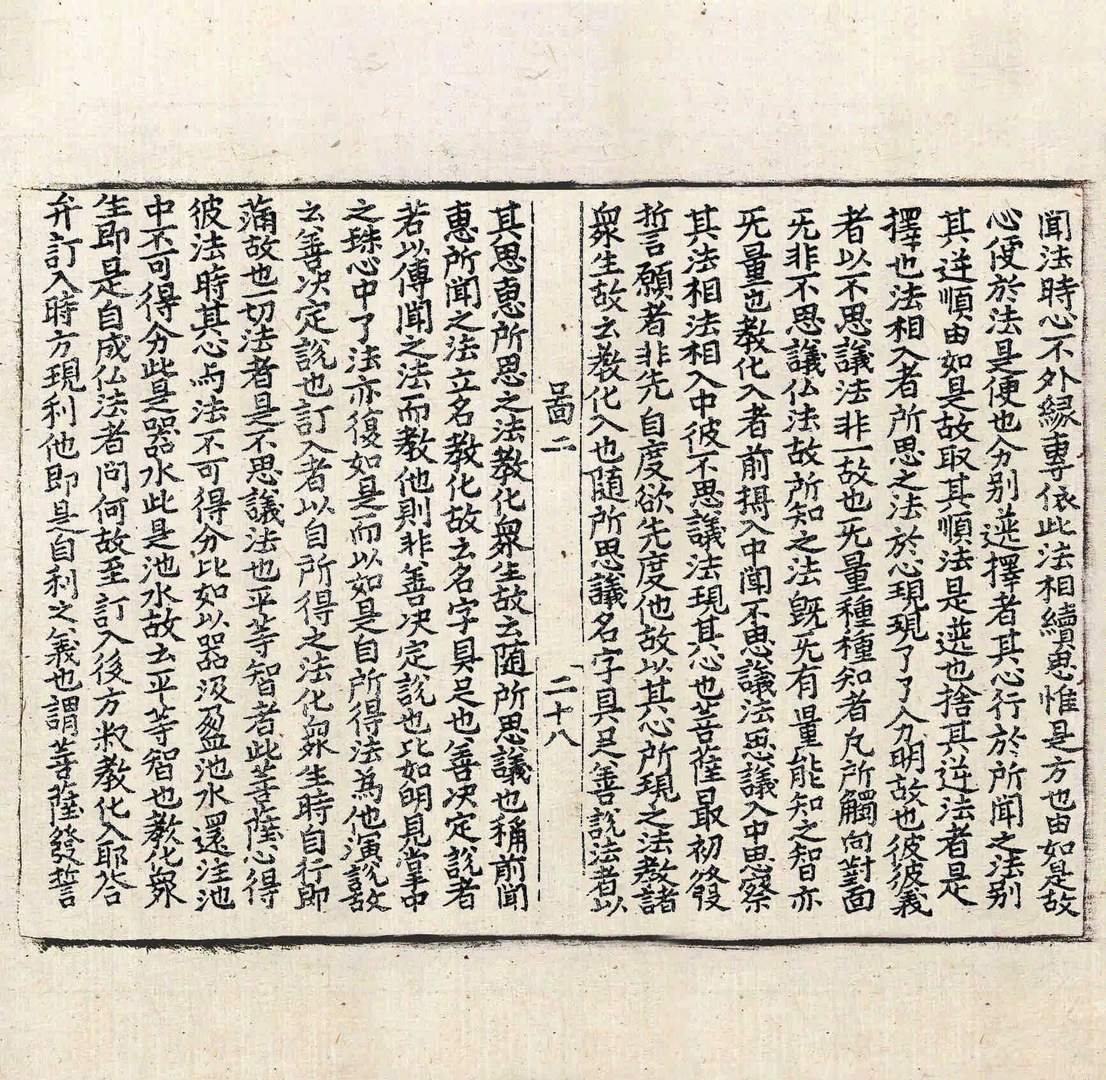 聞法時心不外緣專依此法相續思惟是方也由如是故
心便於法是便也分別選擇者其心行於所聞之法別
其逆順由如是故取其順法是選也捨其逆法者是
擇也法相入者所思之法於心現現了了分明故也彼彼義
者以不思議法非一故也旡量種種知者凡所觸向對面
旡非不思議仏法故所知之法旣旡有量能知之智亦
旡量也教化入者前搙入中聞不思議法思議入中思察
其法相法相入中彼不思議法現其心也菩薩最初發
誓言願者非先自度欲先度他故以其心所現之法教諸
衆生故云教化入也随所思議名字具足善說法者以
呂啚二 二十八
其思惠所思之法教化衆生故云随所思議也稱前聞
惠所聞之法立名教化故云名字具足也善决定說者
若以傳聞之法而教他則非善决定說也比如明見掌中
之珠心中了法亦復如是而以如是自所得法為他演說故
云善决定說也訂入者以自所得之法化衆生時自行即
蒲故也一切法者是不思議法也平等智者此菩薩心得
彼法時其心与法不可得分比如以器汲盈池水還注池
中不可得分此是器水此是池水故云平等智也教化衆
生即是自成仏法者問何故至訂入後方㪽教化入耶答
弁訂入時方現利他即是自利之義也謂菩薩發誓